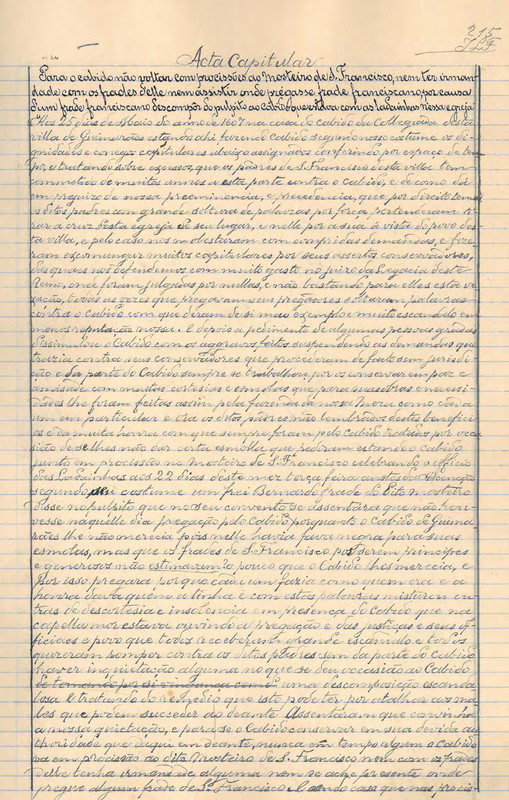 215
Acta Capitular
Para o cabido não voltar com procissões ao Mosteiro de S. Francisco, nem ter irman
dade com os frades delle nem assistir onde pregasse frade franciscano, por causa
d'um frade franciscano descompôr do pulpito ao cabido que estava com as ladainhas n'essa egreja
Aos 25 dias de Maio do anno de 1607 na casa do Cabido da Collegiada desta
villa de Guimarães estando ahi fazendo Cabido segundo nosso costume os di-
gnidades e conegos capitulares abaixo assignados conferindo por espaço de tem
po, e tratando sobre excessos, que os padres de S. Francisco desta villa tem
commettido de muitos annos a esta parte contra o Cabido, e de como
em prejuizo de nossa preeminencia, e precedencia, que por direito temos
os ditos padres com grande soltura de palavras por força pertenderam ti-
rar a cruz desta egreja de seu lugar, e nelle por a sua á vista do povo des
ta villa, e pelo caso nos molestaram com compridas demandas, e fize-
ram escommungar muitos capitulares por seus assertos conservadores,
dos quaes nos defendemos com muito gasto no juizo da Legacia deste
Reino, onde foram julgadas por nullas, e não bastando para elles esta ve-
xação, todas as vezes que pregavam seus pregadores soltavam palavras
contra o Cabido com que deram de si mao exemplo e muito escandalo em
menos reputação nossa. E depois a pedimento de algumas pessoas graves
dissimulou o Cabido com os aggravos feitos suspendendo as demandas que
trazia contra seus conservadores que procederam de facto sem jurisdi
ção e da parte do Cabido sempre se trabalhou por os conservar em paz e
amisade com muitas cortesias e esmolas que para suas obras e necessi-
dades lhe foram feitas assim pela fazenda da nossa Meza como cada
um em particular e ora os ditos padres não lembrados destes benefici
os e da muita honra com que sempre foram pelo Cabido tratados por occa
sião de se lhes não dar certa esmolla que pediram estando o Cabido
junto em procissão no Mosteiro de S. Francisco celebrando o officio
das Ladainhas aos 22 dias deste mez terça feira antes da Ascenção
segundo seu costume um frei Bernardo frade do dito Mosteiro
disse no pulpito que no seu convento se assentara que não hou-
vesse naquelle dia pregação pelo Cabido porquanto o Cabido de Guima
rães lhe não merecia pois nelle havia fava negra para suas
esmolas, mas que os frades de S. Francisco por serem principes
e generosos não estimaram o pouco que o Cabido lhes merecia, e
por isso pregara porque cada um fazia como quem era e a
honra dava quem a tinha e com estas palavras misturou ou
tras de descortesia e insolencia em presença do Cabido que na
capella mor estava ouvindo a pregação e das justiças e seus of-
ficiaes e povo que todos receberam grande escandalo e todos
quizeram romper contra os ditos padres sem da parte do Cabido
haver inquietação alguma no que se deu occasião ao Cabido
uma descomposição escanda
losa E tratando do remedio que isto pode ter por atalhar aos ma
les que podem succeder ao deante Assentaram que convinha
a nossa quietação, e para se o Cabido conservar em sua devida au
thoridade que daqui em deante nunca em tempo algum o Cabido
vá em procissão ao dito Mosteiro de S. Francisco nem com os frades
delle tenha irmandade alguma nem se ache presente onde
pregue algum frade de S. Francisco. E sendo caso que nas procis-